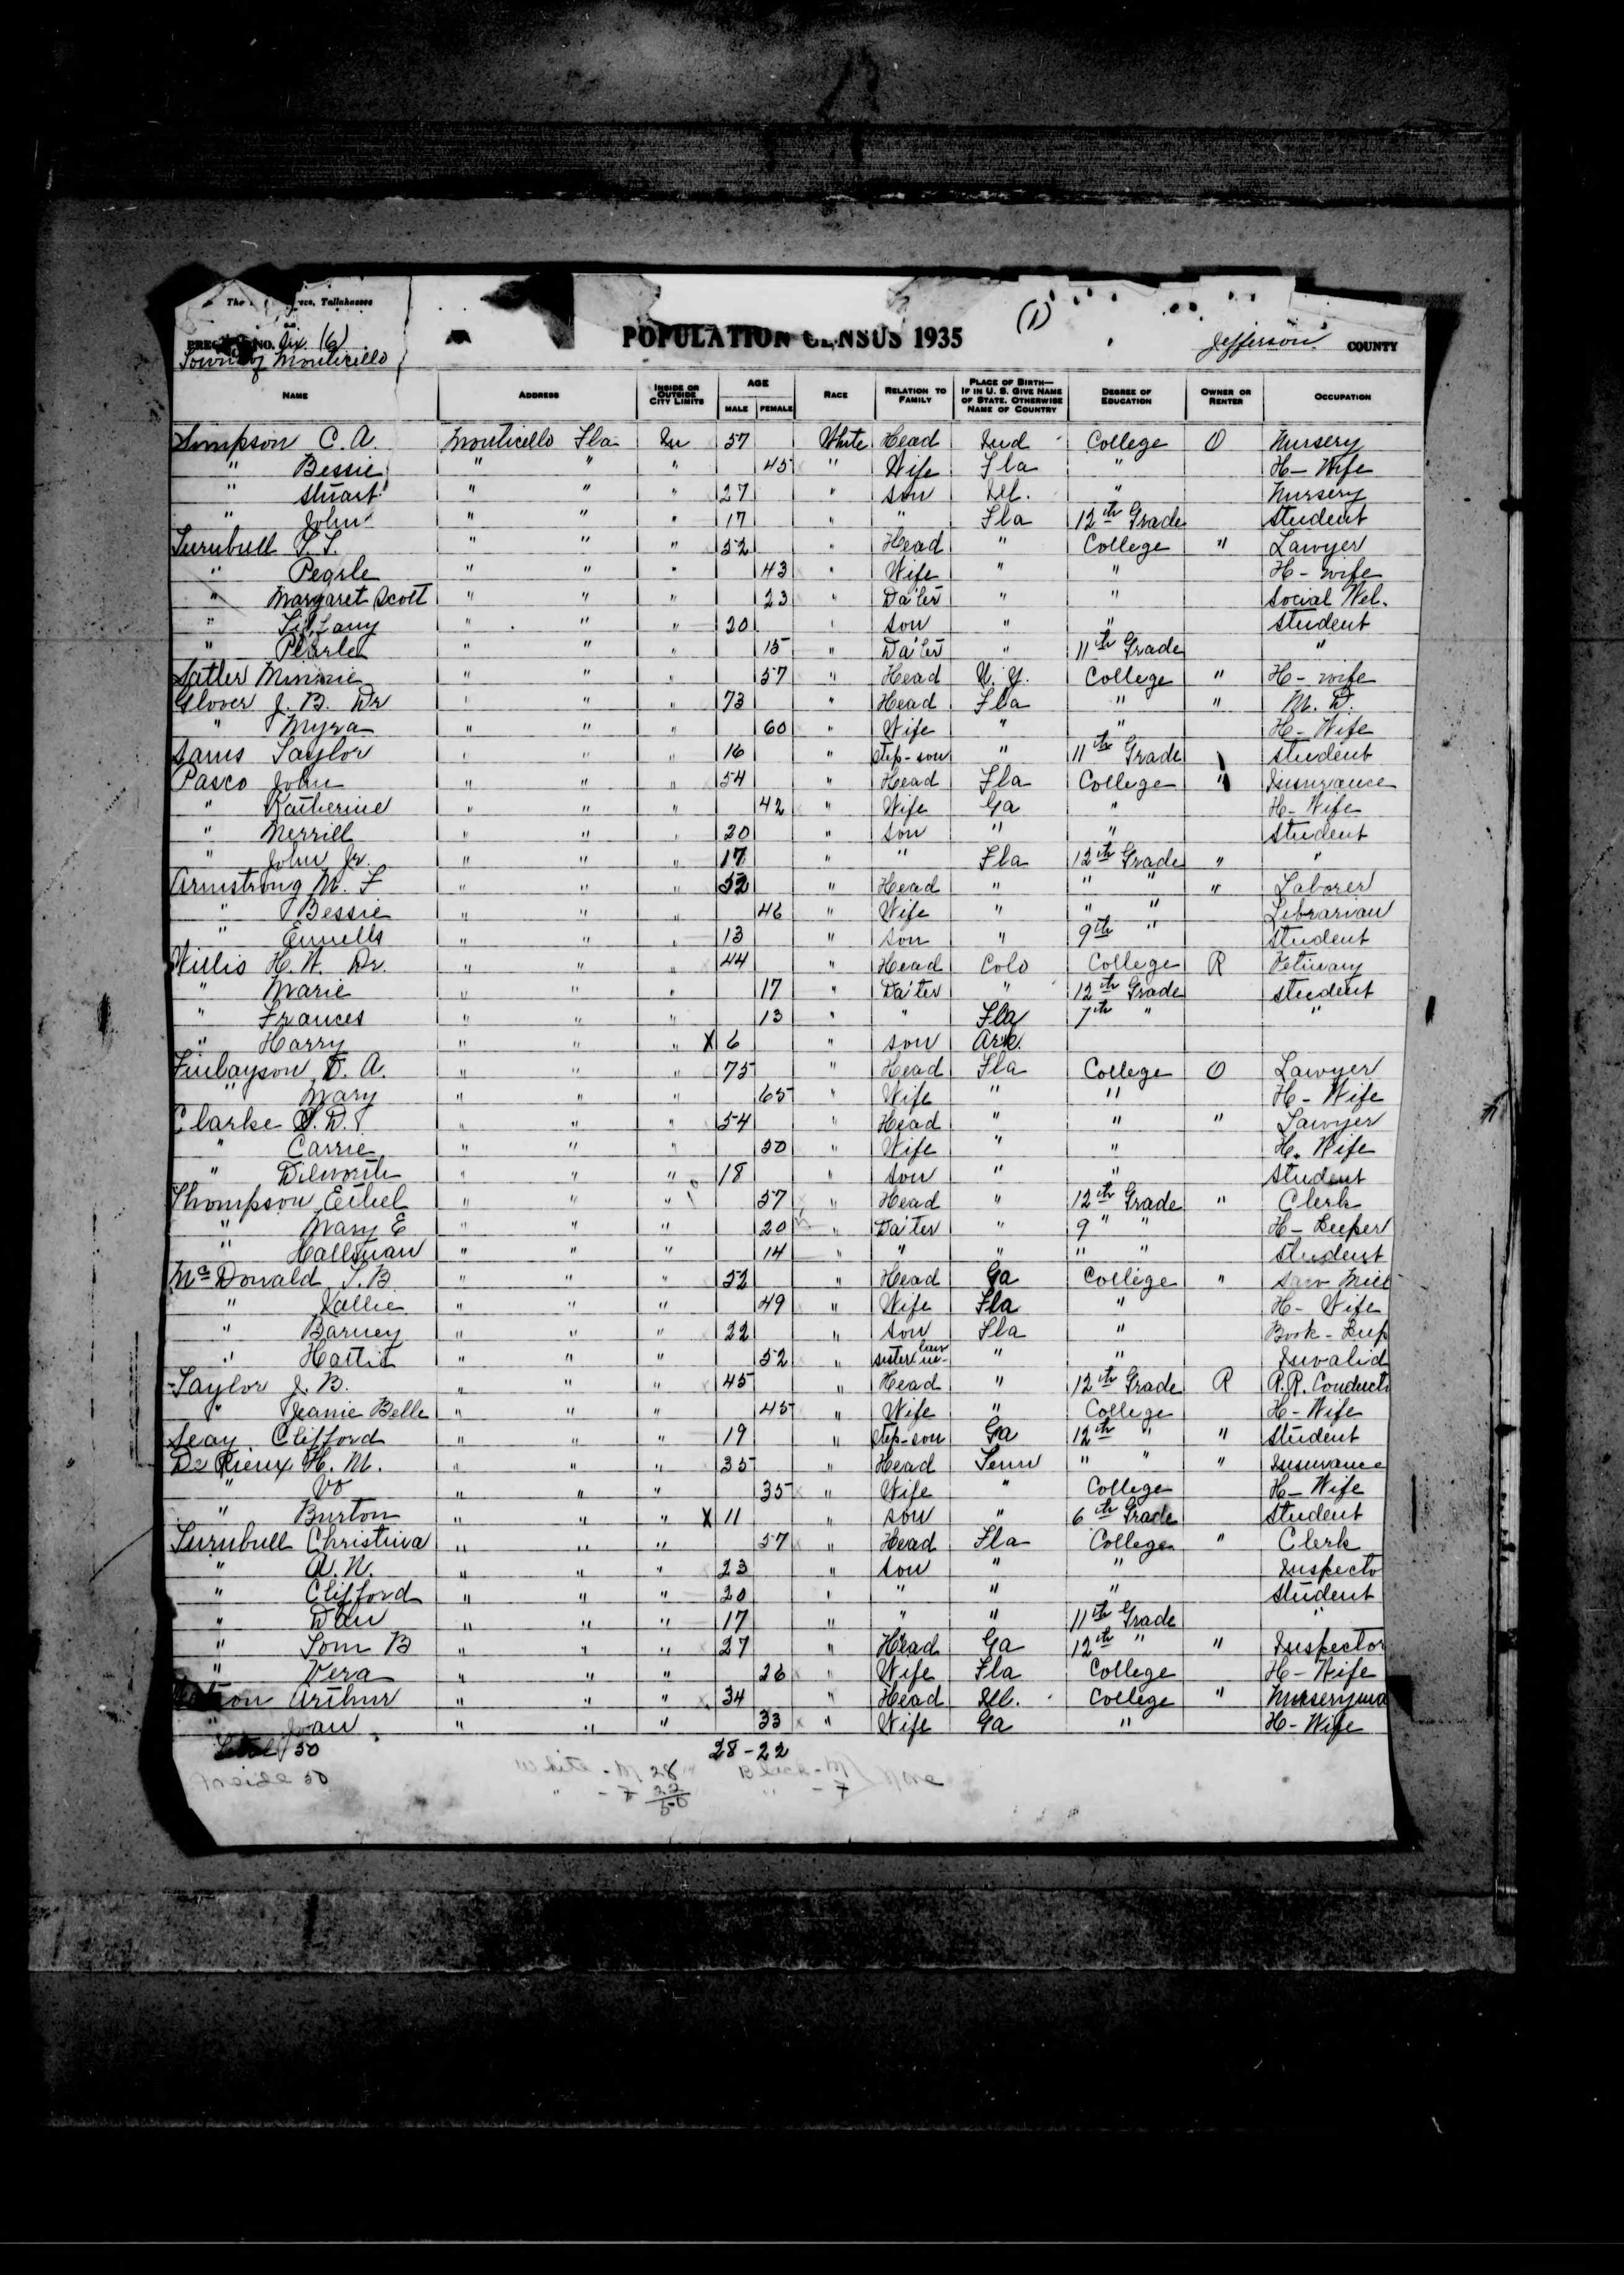 The Tallahassee
PRECINCT NO. Six (6)
Town of Monticello
POPULATION CENSUS 1935
(1)
Jefferson COUNTY
NAME ADDRESS INSIDE OR OUTSIDE CITY LIMITS AGE MALE FEMALE RACE RELATION TO FAMILY PLACE OF BIRTH—IF IN U. S. GIVE NAME OF STATE. OTHERWISE NAME OF COUNTRY DEGREE OF EDUCATION OWNER OR RENTER OCCUPATION
Simpson C. A. Monticello Fla In 57 White Head Ind College O Nursery
" Bessie " " " 45 " Wife Fla " H- Wife
" Stuart " " " 27 " son Ill. " Nursery
" John " " " 17 " " Fla 12th Grade student
Turnbull T. T. " " " 52 " Head " College " Lawyer
" Pearle " " " 43 " Wife " " H- wife
" Margaret Scott " " " 23 " Da'ter " " Social Wel.
" Tiffany " " " 20 " son " " student
" Pearle " " " 15 " Da'ter " 11th Grade "
Satler Minnie " " " 57 " Head N. Y. College " H- wife
Glover J. B. Dr " " " 73 " Head Fla " " M. D.
" Myra " " " 60 " Wife " " H- Wife
Sams Taylor " " " 16 " step-son " 11th Grade student
Pasco John " " " 54 " Head Fla College " Insurance
" Katherine " " " 42 " Wife Ga " H- Wife
" Merrill " " " 20 " son " " student
" John Jr. " " " 17 " " Fla 12th Grade " "
Armstrong M. F " " " 52 " Head " " " " Laborer
" Bessie " " " 46 " Wife " " " Librarian
" Ennells " " " 13 " son " 9th " student
Willis H. W. Dr. " " " 44 " Head Colo College R Vetinary
" Marie " " " 17 " Da'ter " 12th Grade student
" Frances " " " 13 " " Fla 7th " "
" Harry " " " X 6 " son Ark.
Finlayson D. A. " " " 75 " Head Fla College O Lawyer
" Mary " " " 65 " Wife " " H- Wife
Clarke S. D. " " " 54 " Head " " " Lawyer
" Carrie " " " 50 " Wife " " H. Wife
" Dilworth " " " 18 " son " " student
Thompson Ethel " " " 57 " Head " 12th Grade " Clerk
" Mary E " " " 20 " Da'ter " 9 " " H- Keeper
" Hallman " " " 14 " " " " " student
McDonald T. B " " " 52 " Head Ga College " Saw Mill
" Kallie " " " 49 " Wife Fla " H- Wife
" Barney " " " 22 " son Fla " Book- Keep
" Hattie " " " 52 " sister in-law " " Invalid
Taylor J. B. " " " 45 " Head " 12th Grade R R.R. Conducto
" Jeanie Belle " " " 45 " Wife " College H- Wife
Seay Clifford " " " 19 " step-son Ga 12th " " student
De Rieux H. M. " " " 35 " Head Tenn " " " Insurance
" Vo " " " 35 " Wife " College H- Wife
" Burton " " " X 11 " son " 6th Grade student
Turnbull Christina " " " 57 " Head Fla College " Clerk
" A. N. " " " 23 " son " " Inspecto
" Clifford " " " 20 " " " " student
" Dan " " " 17 " " " 11th Grade "
" Tom B " " " 27 " Head Ga 12th " " Inspector
" Vera " " " 26 " Wife Fla College H- Wife
Arthur " " " 34 " Head Ill. College " Nurseryma
" Joan " " " 33 " Wife Ga " H- Wife
Total 50 28-22
Inside 50 White - M 28 Black - M None
" - F 22 " - F
50